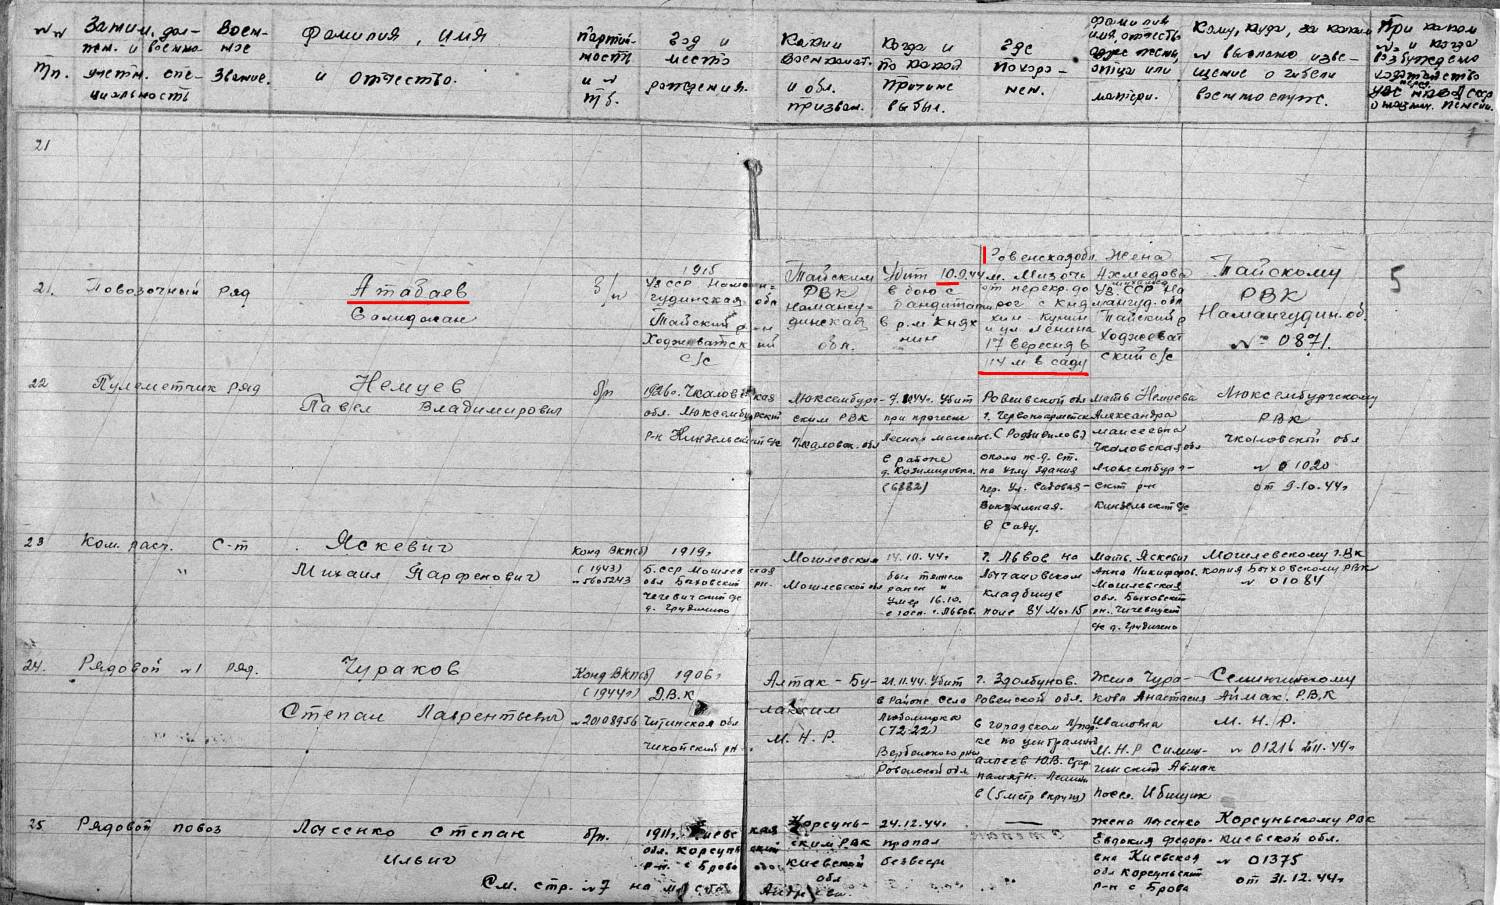 №№ Заним. дол-
жн. и военно
уч. спе-
циальность
Пп.
Воен-
ное
Звание.
Фамилия, имя
и отчество.
партий-
ность
и №
п/б.
Год и
место
рождения.
Каким
Военкомат.
и обл.
призван.
Когда и
по какой
причине
выбыл.
Где
похоро-
нен.
фамилия
имя, отчество
жены,
отца или
матери.
Кому, куда, за каким
№ выслано изве-
щение о гибели
военнослуж.
При каком
№ и когда
возбуждено
ходатайство
о назнач. пенсии.
21
21. Повозочный ряд
Атабаев
б/п
1915
Уз ССР Наман-
обл
Тайский р-н
с/с
Тайским
РВК
обл.
Убит 10.9.44
в бою с
бандитами
в р-н Княж
Ровенская обл.
м. Мизоч
от перекр. до
рог с
и ул. Ленина
17 вересня в
114 м в саду
Жена
Ахмедова
Уз. ССР На
мангуд. обл
Тайский р
ский с/с
Тайскому
РВК
Намангудин. об.
№ 0871.
5
22 Пулеметчик ряд
Немцев
Павел Владимирович
б/п
1926г. Чкаловская
обл. Люксембургский
р-н Кинзельский с/с
Люксембург-
ским РВК
Чкаловск. обл
Убит
при прочесе
лесных массив.
в районе
д. Казимировка.
(6882)
Ровенской обл
г. Червоноармейск
(Родзивилов)
около ж.д. ст.
на углу здания
пер. ул. Садовая-
Вокзальная.
в саду.
мать Немцева
Александра
Моисеевна
Чкаловская обл
Люксембург-
ский р-н
Кинзельский с/с
Люксембургскому
РВК
Чкаловской обл
№ 01020
от 9-10.44г
23 Ком. расч. С-т
Яскевич
Михаил Парфенович
Канд ВКП(б)
(1943)
№ 5605243
1919г
Б.ССР Могилевская
обл Быховский рн.
Чечевичский с/с
д. Грудичино
Могилевским
Могилевской обл
14.10.44г
был тяжело
ранен и
умер 16.10.
в госп. г. Львов.
г. Львов на
Лычаковском
кладбище
поле 84 Мог 15
Мать Яскевич
Анна Никифоров.
Могилевская
обл. Быховский
рн. Чичевицкий
с/с д. Грудичено
Могилевскому ГВК
копия Быховскому РВК
№ 01084
24. Рядовой №1 ряд.
Чураков
Степан Лаврентьевич
Канд ВКП(б)
(1944г)
№ 20108956
1906г
Д.В.К
Читинская обл
Чикойский рн.
Алтак-Бу-
лакским
М.Н.Р.
21.11.44. Убит
в районе села
Любомирка
(7222)
Вербенского рна
Ровенской обл
г. Здолбунов.
Ровенской обл.
в городском пар
ке по центральной
аллеи Ю.В. стор.
памятн. Ленину
в (5 метр в кругу)
Жена Чура-
кова Анастасия
Ивановна
М.Н.Р Силин-
гинский Аймак
посел. Ибицик
Селингинскому
Аймак. Р.В.К
М.Н.Р.
№ 01216
25 Рядовой повоз
Лысенко Степан
Ильич
б/п.
1911г. Киевская
обл. Корсуньский
р-н с Брова
См. стр. №7 на
Корсунь-
ским РВК
Киевской
обл
24.12.44г
пропал
безвести
—
жена Лысенко
Евдокия Федоро-
вна Киевская
обл Корсуньский
р-н с Брова
Корсуньскому РВК
Киевской обл.
№ 01375
от 31.12.44г